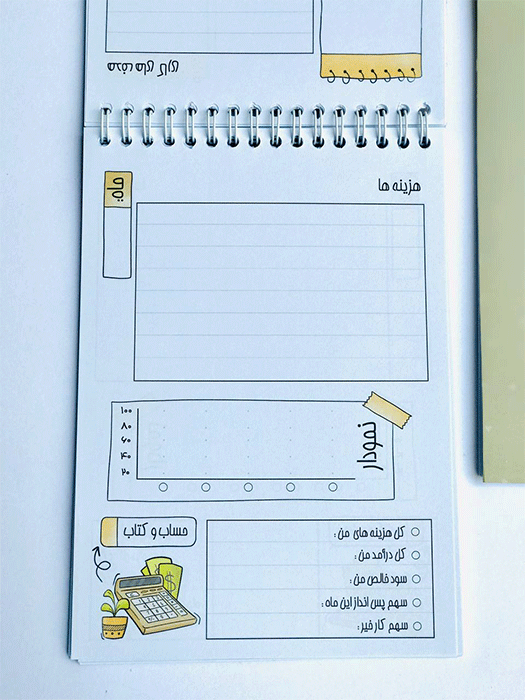 هدف های کاری
هزینه ها
ماه:
نمودار
۱۰۰
۸۰
۶۰
۴۰
۲۰
حساب و کتاب
کل هزینه های من :
کل درآمد من :
سود خالص من :
سهم پس انداز این ماه :
سهم کار خیر :